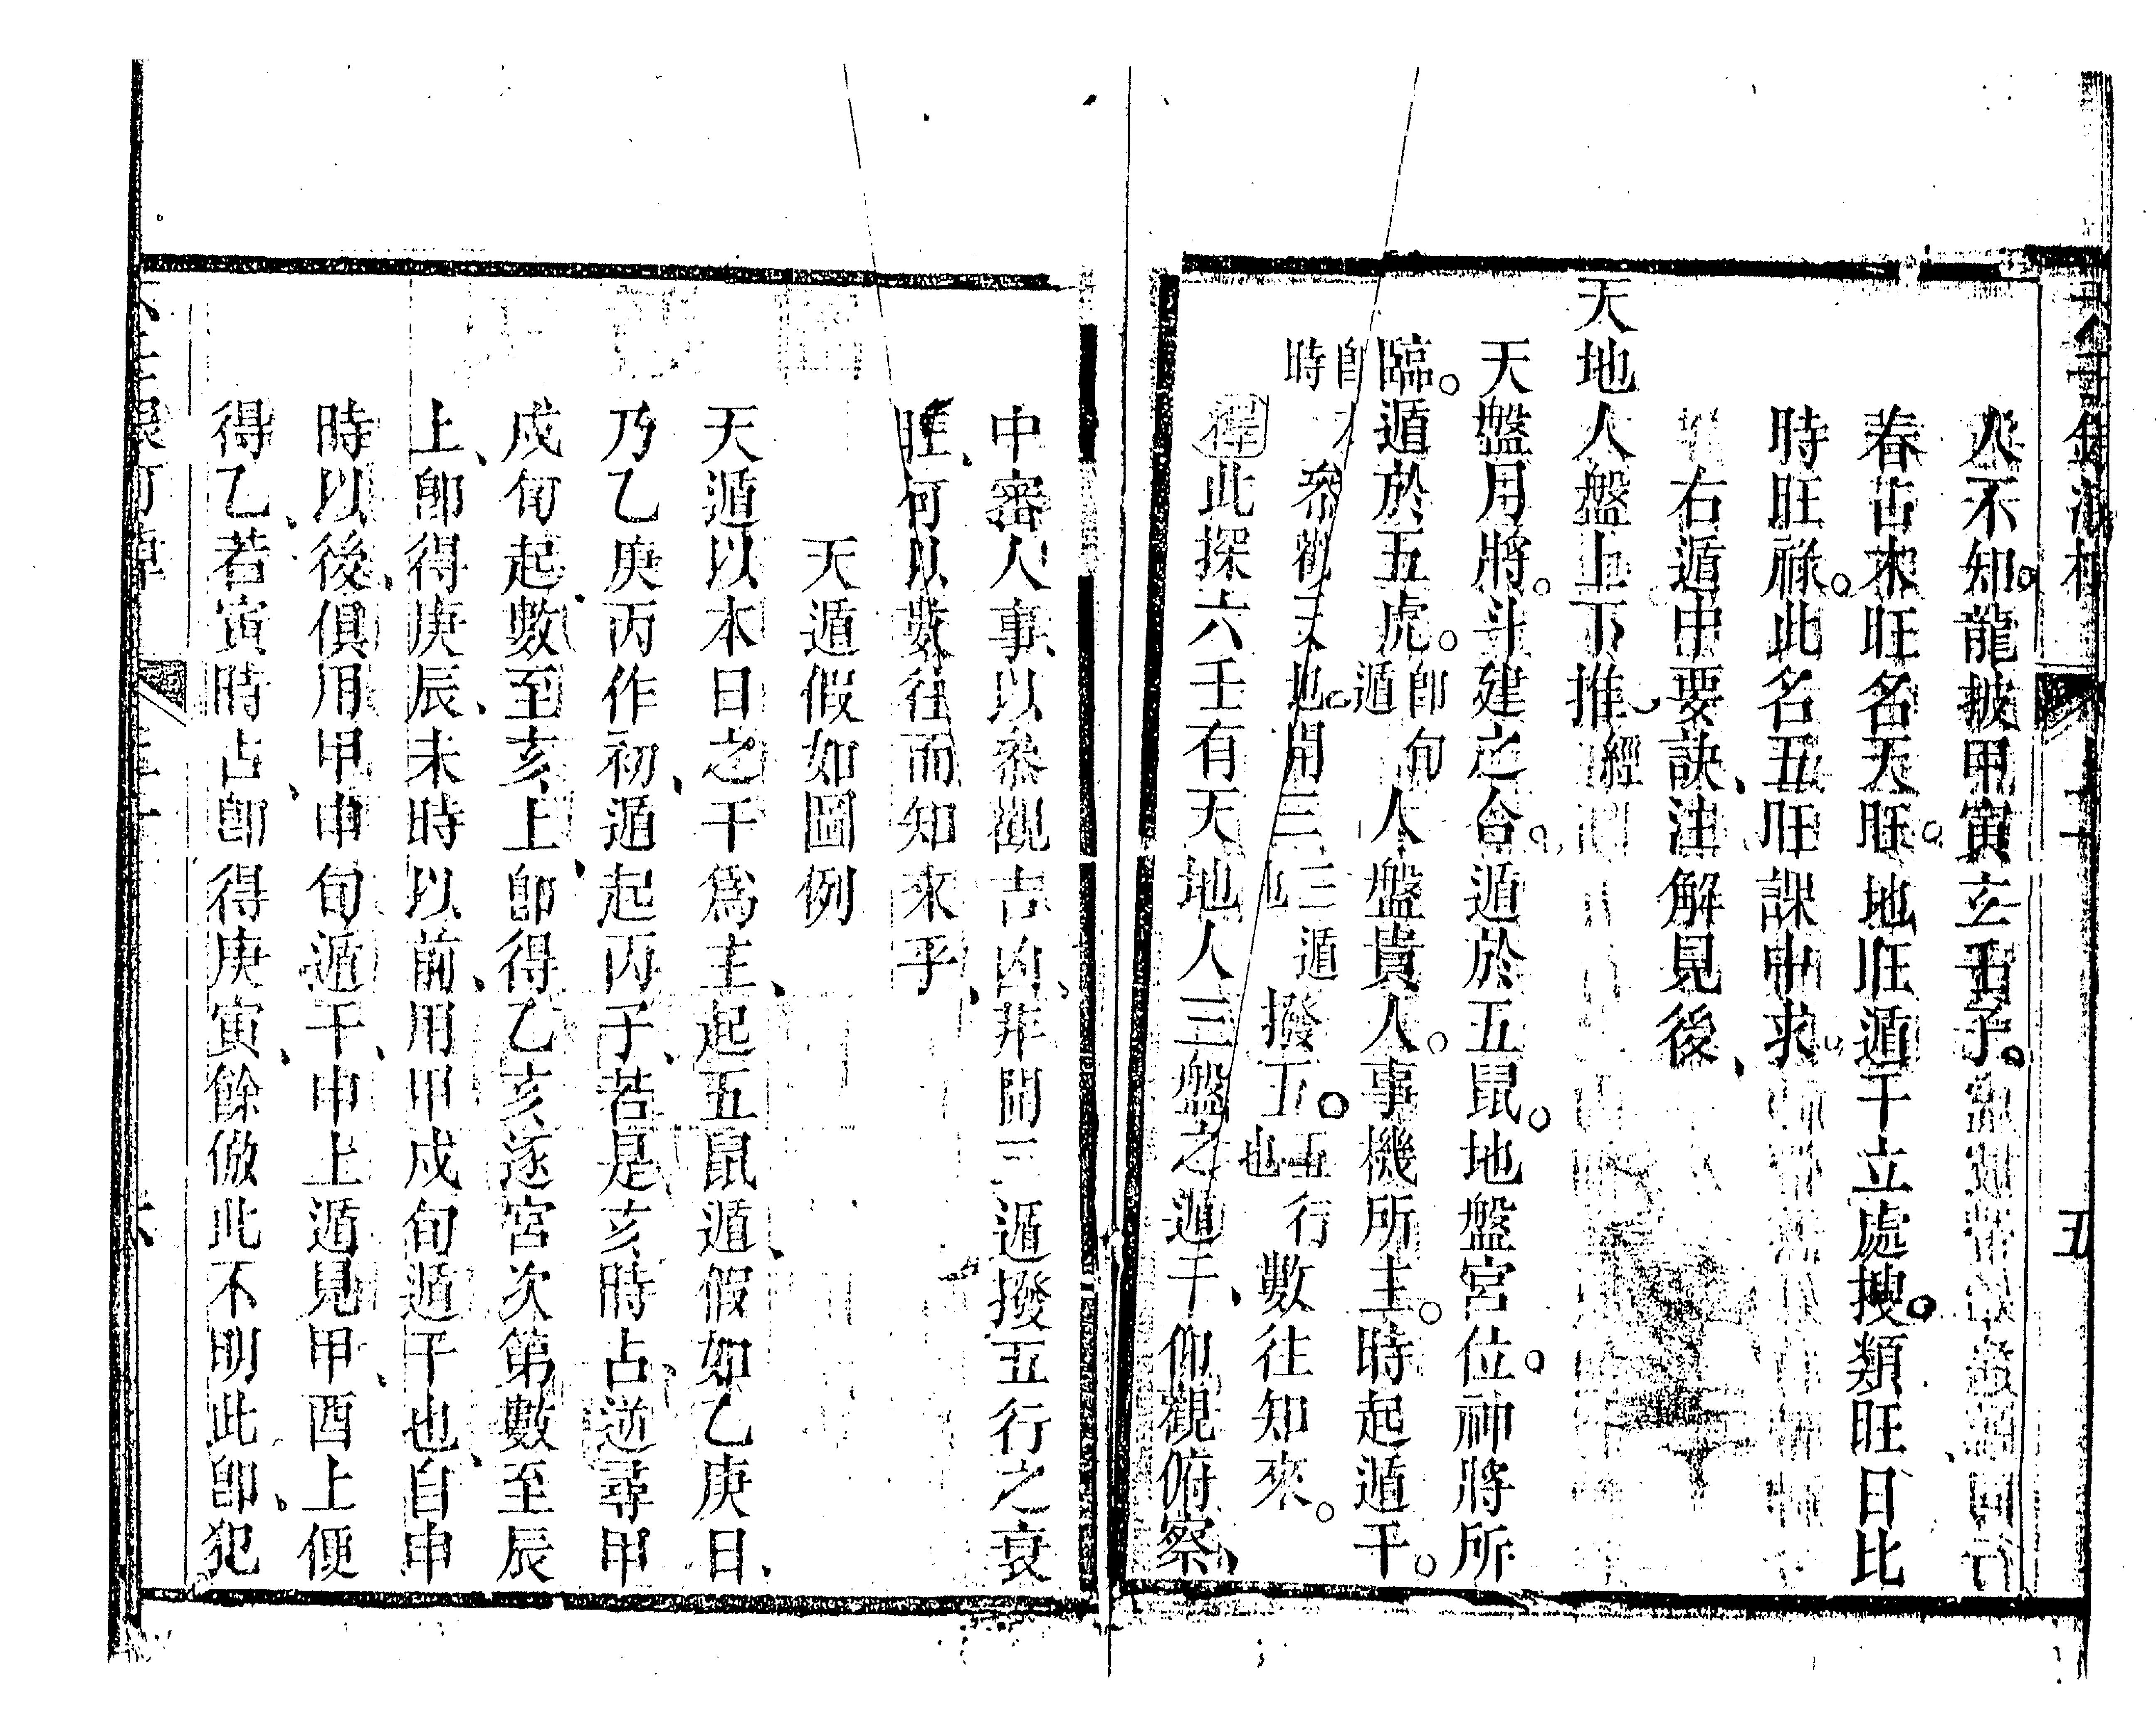 人不知龍披甲寅玄壬子
春占木旺名天旺地旺遁干立處搜類旺日比
時旺祿此名五旺課中求
右遁中要訣注解見後
天地人盤上下推經
天盤用將斗建之合遁於五鼠地盤宮位神將所
臨遁於五虎卽旬遁人盤貴人事機所主時起遁干
卽本時參觀天地開三三遁也撥丁五行也數往知來
釋此探六壬有天地人三盤之遁干仰觀俯察
中審人事以參觀吉凶非開三遁撥五行之衰
旺何以數往而知來乎
天遁假如圖例
天遁以本日之干爲主起五鼠遁假如乙庚日
乃乙庚丙作初遁起丙子若是亥時占逆尋甲
戌旬起數至亥上卽得乙亥逐宮次第數至辰
上卽得庚辰未時以前用甲戌旬遁干也自申
時以後俱用甲申旬遁干申上遁見甲酉上便
得乙若寅時占卽得庚寅餘倣此不明此卽犯